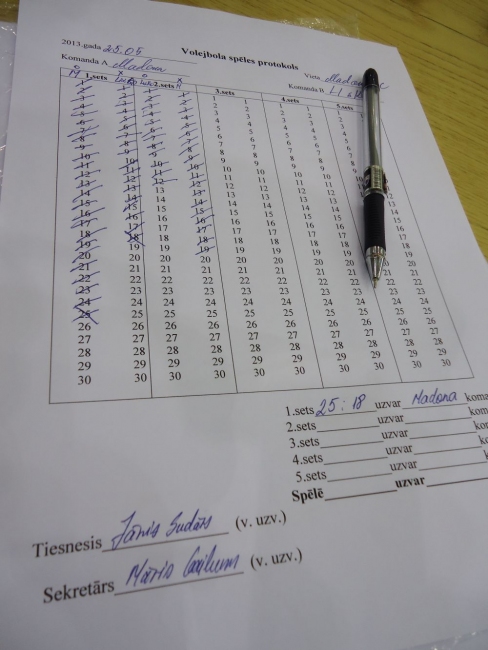 2013.gada 25.05
Volejbola spēles protokols
Komanda A Madona
Vieta Madona
Komanda B
1.sets 2.sets 3.sets 4.sets 5.sets
1 1 1 1 1 1 1 1 1
2 2 2 2 2 2 2 2 2
3 3 3 3 3 3 3 3 3
4 4 4 4 4 4 4 4 4
5 5 5 5 5 5 5 5 5
6 6 6 6 6 6 6 6 6
7 7 7 7 7 7 7 7 7
8 8 8 8 8 8 8 8 8
9 9 9 9 9 9 9 9 9
10 10 10 10 10 10 10 10 10
11 11 11 11 11 11 11 11 11
12 12 12 12 12 12 12 12 12
13 13 13 13 13 13 13 13 13
14 14 14 14 14 14 14 14 14
15 15 15 15 15 15 15 15 15
16 16 16 16 16 16 16 16 16
17 17 17 17 17 17 17 17 17
18 18 18 18 18 18 18 18 18
19 19 19 19 19 19 19 19 19
20 20 20 20 20 20 20 20 20 20
21 21 21 21 21 21 21 21 21 21
22 22 22 22 22 22 22 22 22 22
23 23 23 23 23 23 23 23 23 23
24 24 24 24 24 24 24 24 24 24
25 25 25 25 25 25 25 25 25 25
26 26 26 26 26 26 26 26 26 26
27 27 27 27 27 27 27 27 27 27
28 28 28 28 28 28 28 28 28 28
29 29 29 29 29 29 29 29 29 29
30 30 30 30 30 30 30 30 30 30
1.sets 25:18 uzvar Madona koma
2.sets uzvar kom
3.sets uzvar kor
4.sets uzvar ko
5.sets uzvar ko
Spēlē uzvar
Tiesnesis Jānis (v. uzv.)
Sekretārs Māris (v. uzv.)